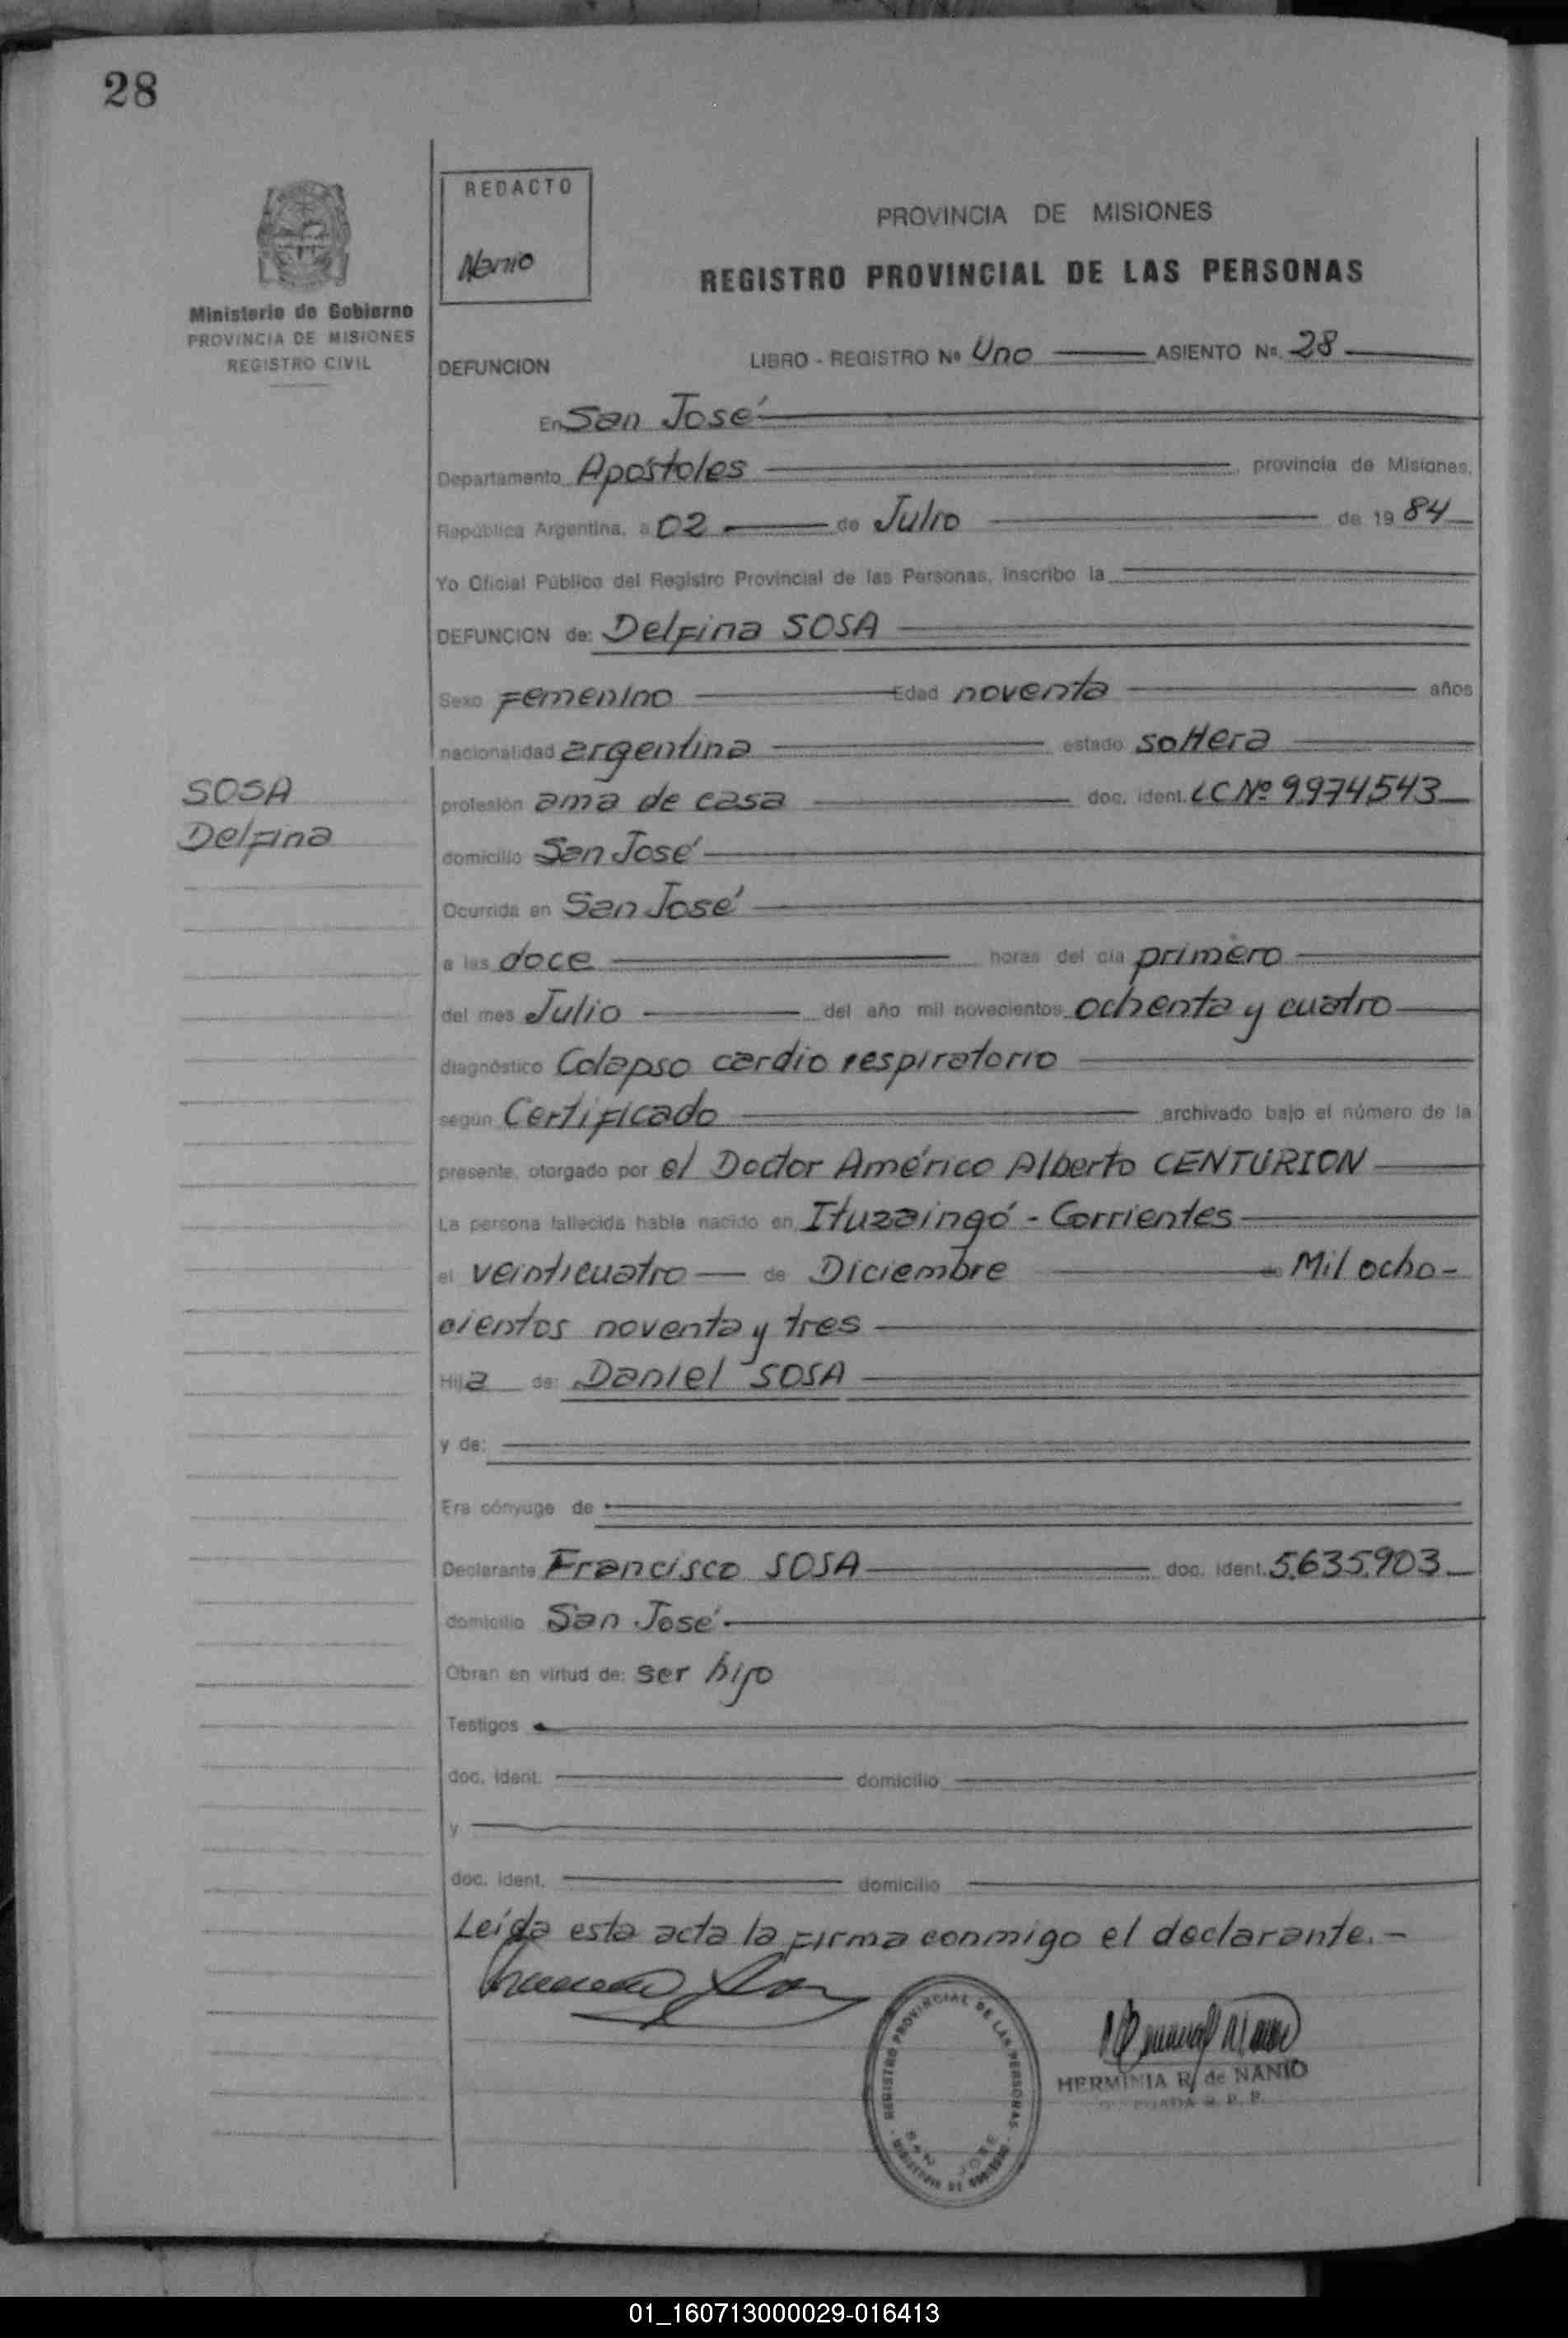 28
REDACTO
Nanio
Ministerio de Gobierno
PROVINCIA DE MISIONES
REGISTRO CIVIL
PROVINCIA DE MISIONES
REGISTRO PROVINCIAL DE LAS PERSONAS
DEFUNCION LIBRO - REGISTRO Nº Uno ASIENTO Nº. 28
En San José
Departamento Apóstoles, provincia de Misiones,
República Argentina, a 02 de Julio de 1984
Yo Oficial Público del Registro Provincial de las Personas, inscribo la
DEFUNCION de: Delfina SOSA
Sexo Femenino Edad noventa años
nacionalidad argentina estado soltera
SOSA
Delfina
profesión ama de casa doc. ident. LC Nº 9974543
domicilio San José
Ocurrida en San José
a las doce horas del día primero
del mes Julio del año mil novecientos ochenta y cuatro
diagnóstico Colapso cardio respiratorio
según Certificado archivado bajo el número de la
presente, otorgado por el Doctor Américo Alberto CENTURION
La persona fallecida había nacido en Ituzaingó - Corrientes
el veinticuatro de Diciembre de Mil ocho-
cientos noventa y tres
Hija de: Daniel SOSA
y de:
Era cónyuge de
Declarante Francisco SOSA doc. ident. 5.635.903
domicilio San José
Obran en virtud de: ser hijo
Testigos
doc. ident. domicilio
y
doc. ident. domicilio
Leída esta acta la firma conmigo el declarante.-
REGISTRO PROVINCIAL DE LAS PERSONAS
SAN JOSE
MINISTERIO DE GOBIERNO
HERMINIA R. de NANIO
R. P. P.
01_160713000029-016413